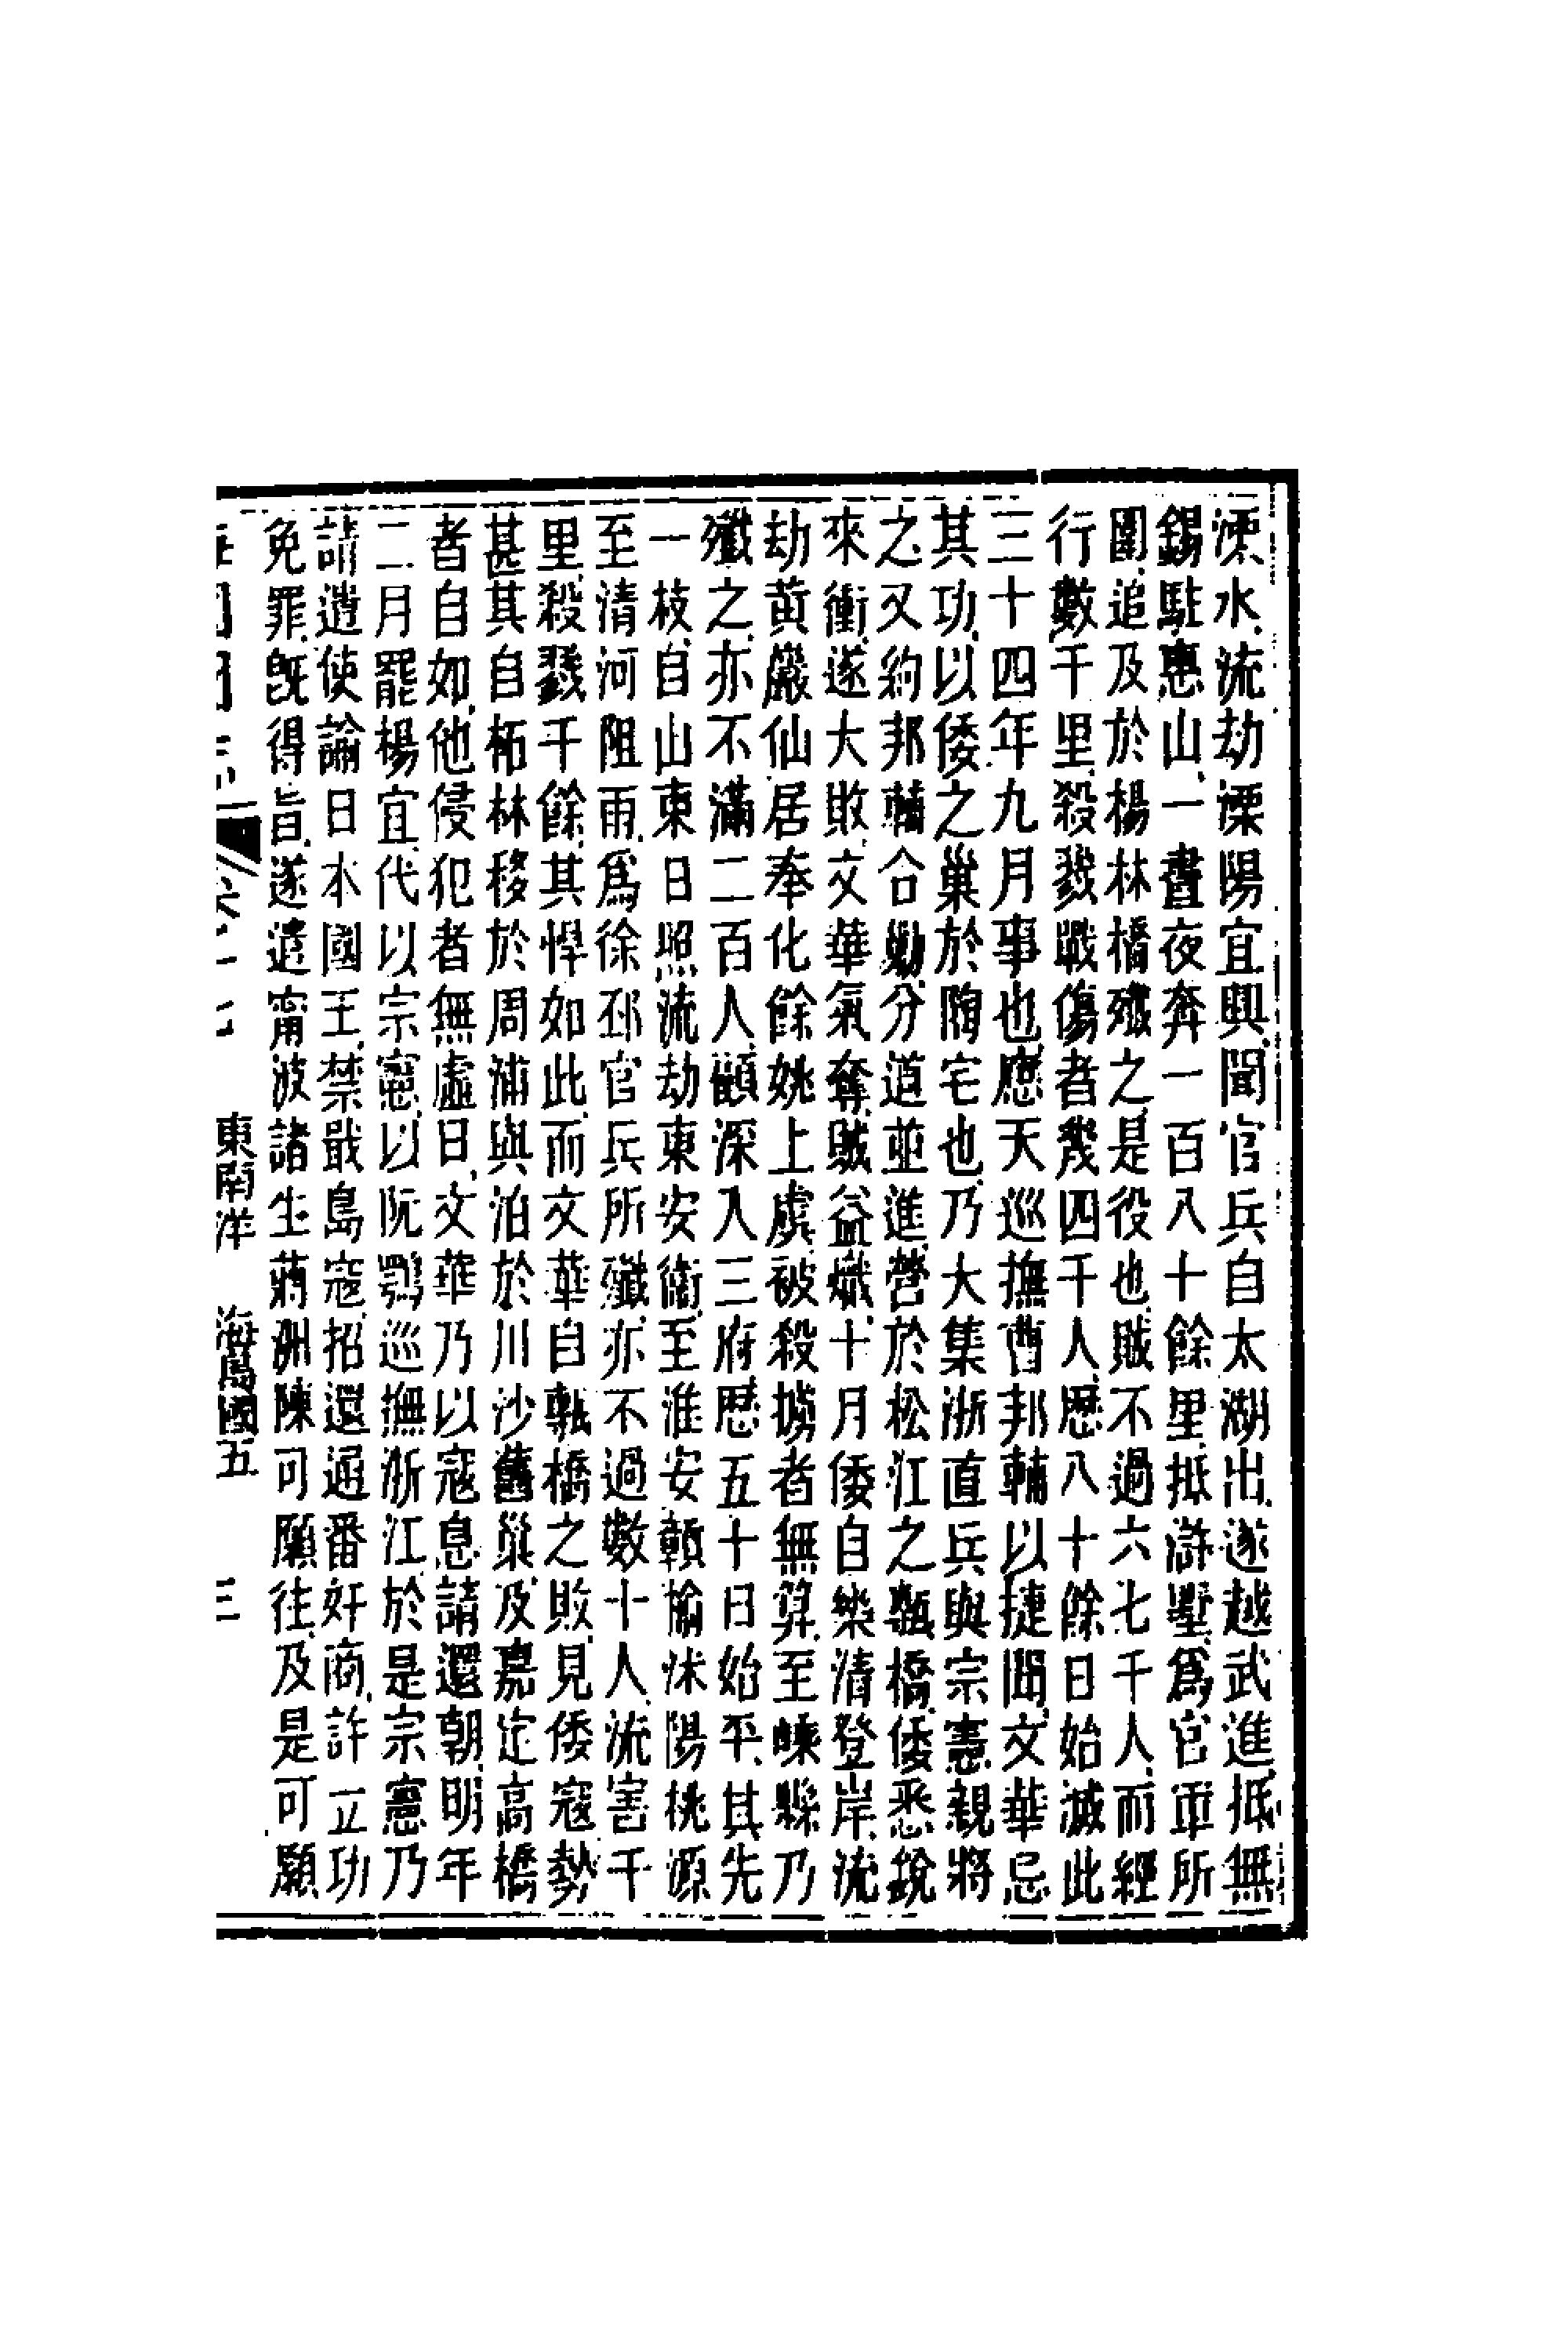 溧水流劫溧陽宜興聞官兵自太湖出遂越武進抵無
錫駐惠山一晝夜奔一百八十餘里抵滸墅爲官軍所
圍追及於楊林橋殲之是役也賊不過六七千人而經
行數千里殺戮戰傷者幾四千人歷八十餘日始滅此
三十四年九月事也應天巡撫曹邦輔以捷聞文華忌
其功以倭之巢於陶宅也乃大集浙直兵與宗憲親將
之又約邦輔合勦分道並進營於松江之甎橋倭悉銳
來衝遂大敗文華氣奪賊益熾十月倭自樂清登岸流
劫黃巖仙居奉化餘姚上虞被殺擄者無算至嵊縣乃
殲之亦不滿二百人顧深入三府歷五十日始平其先
一枝自山東日照流劫東安衞至淮安贛榆沭陽桃源
至清河阻雨爲徐邳官兵所殲亦不過數十人流害千
里殺戮千餘其悍如此而文華自甎橋之敗見倭寇勢
甚其自柘林移於周浦與泊於川沙舊巢及嘉定高橋
者自如他侵犯者無虛日文華乃以寇息請還朝明年
二月罷楊宜代以宗憲以阮鶚巡撫浙江於是宗憲乃
請遣使諭日本國王禁戢島寇招還通番奸商許立功
免罪旣得旨遂遣甯波諸生蔣洲陳可願往及是可願
海國圖志 卷十七 東南洋 海島國五 三